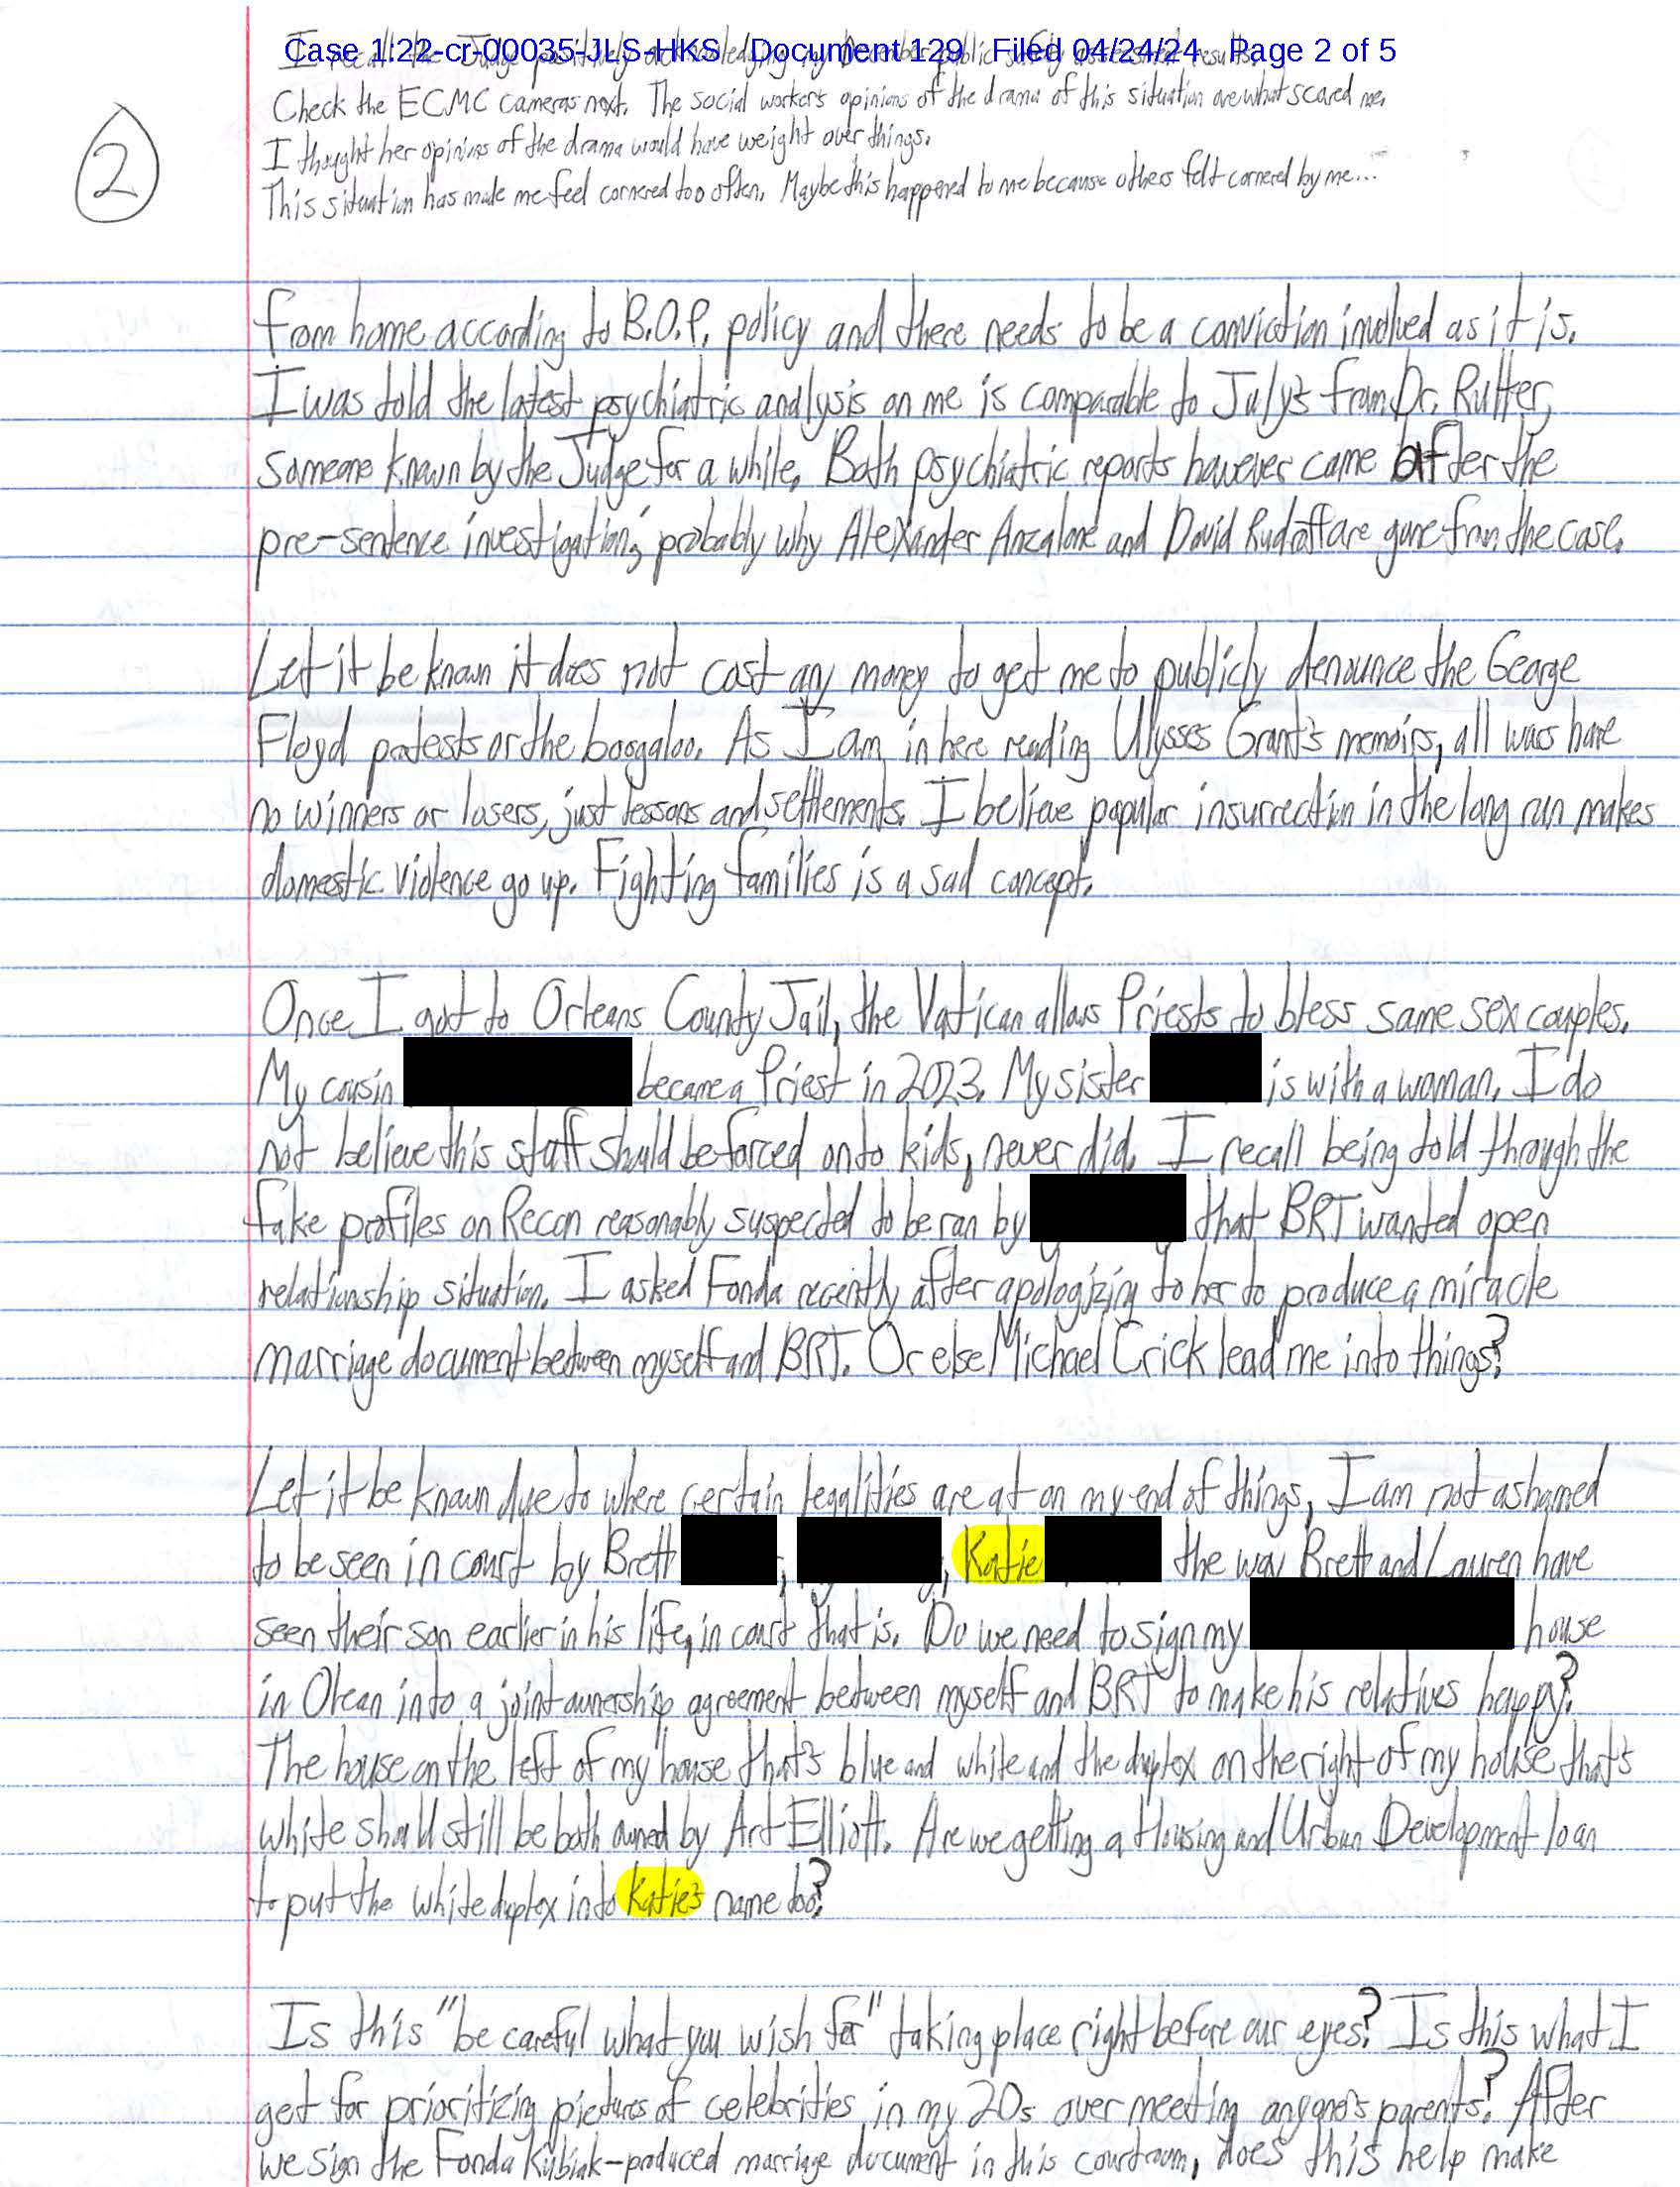 Case 1:22-cr-00035-JLS-HKS Document 129 Filed 04/24/24 Page 2 of 5
I recall the Judge positively acknowledging my December public safety assessment results.
Check the ECMC cameras next. The social worker's opinions of the drama of this situation are what scared me.
I thought her opinions of the drama would have weight over things.
This situation has made me feel cornered too often. Maybe this happened to me because others felt cornered by me...
2
from home according to B.O.P. policy and there needs to be a conviction involved as it is.
I was told the latest psychiatric analysis on me is comparable to July's from Dr. Rutter,
someone known by the Judge for a while. Both psychiatric reports however came after the
pre-sentence investigation, probably why Alexander Anzalone and David Rudroff are gone from the case.
Let it be known it does not cost any money to get me to publicly denounce the George
Floyd protests or the boogaloo. As I am in here reading Ulysses Grant's memoirs, all wars have
no winners or losers, just lessons and settlements. I believe popular insurrection in the long run makes
domestic violence go up. Fighting families is a sad concept.
Once I got to Orleans County Jail, the Vatican allows Priests to bless same sex couples.
My cousin became a Priest in 2023. My sister is with a woman. I do
not believe this stuff should be forced onto kids, never did. I recall being told through the
fake profiles on Recon reasonably suspected to be ran by that BRT wanted open
relationship situation. I asked Fonda recently after apologizing to her to produce a miracle
marriage document between myself and BRT. Or else Michael Crick lead me into things?
Let it be known due to where certain legalities are at on my end of things, I am not ashamed
to be seen in court by Brett , , Katie the way Brett and Lauren have
seen their son earlier in his life, in court that is. Do we need to sign my house
in Olean into a joint ownership agreement between myself and BRT to make his relatives happy?
The house on the left of my house that's blue and white and the duplex on the right of my house that's
white should still be both owned by Art Elliott. Are we getting a Housing and Urban Development loan
to put the white duplex into Katie's name too?
Is this "be careful what you wish for" taking place right before our eyes? Is this what I
get for prioritizing pictures of celebrities in my 20s over meeting anyone's parents? After
we sign the Fonda Kubiak-produced marriage document in this courtroom, does this help make